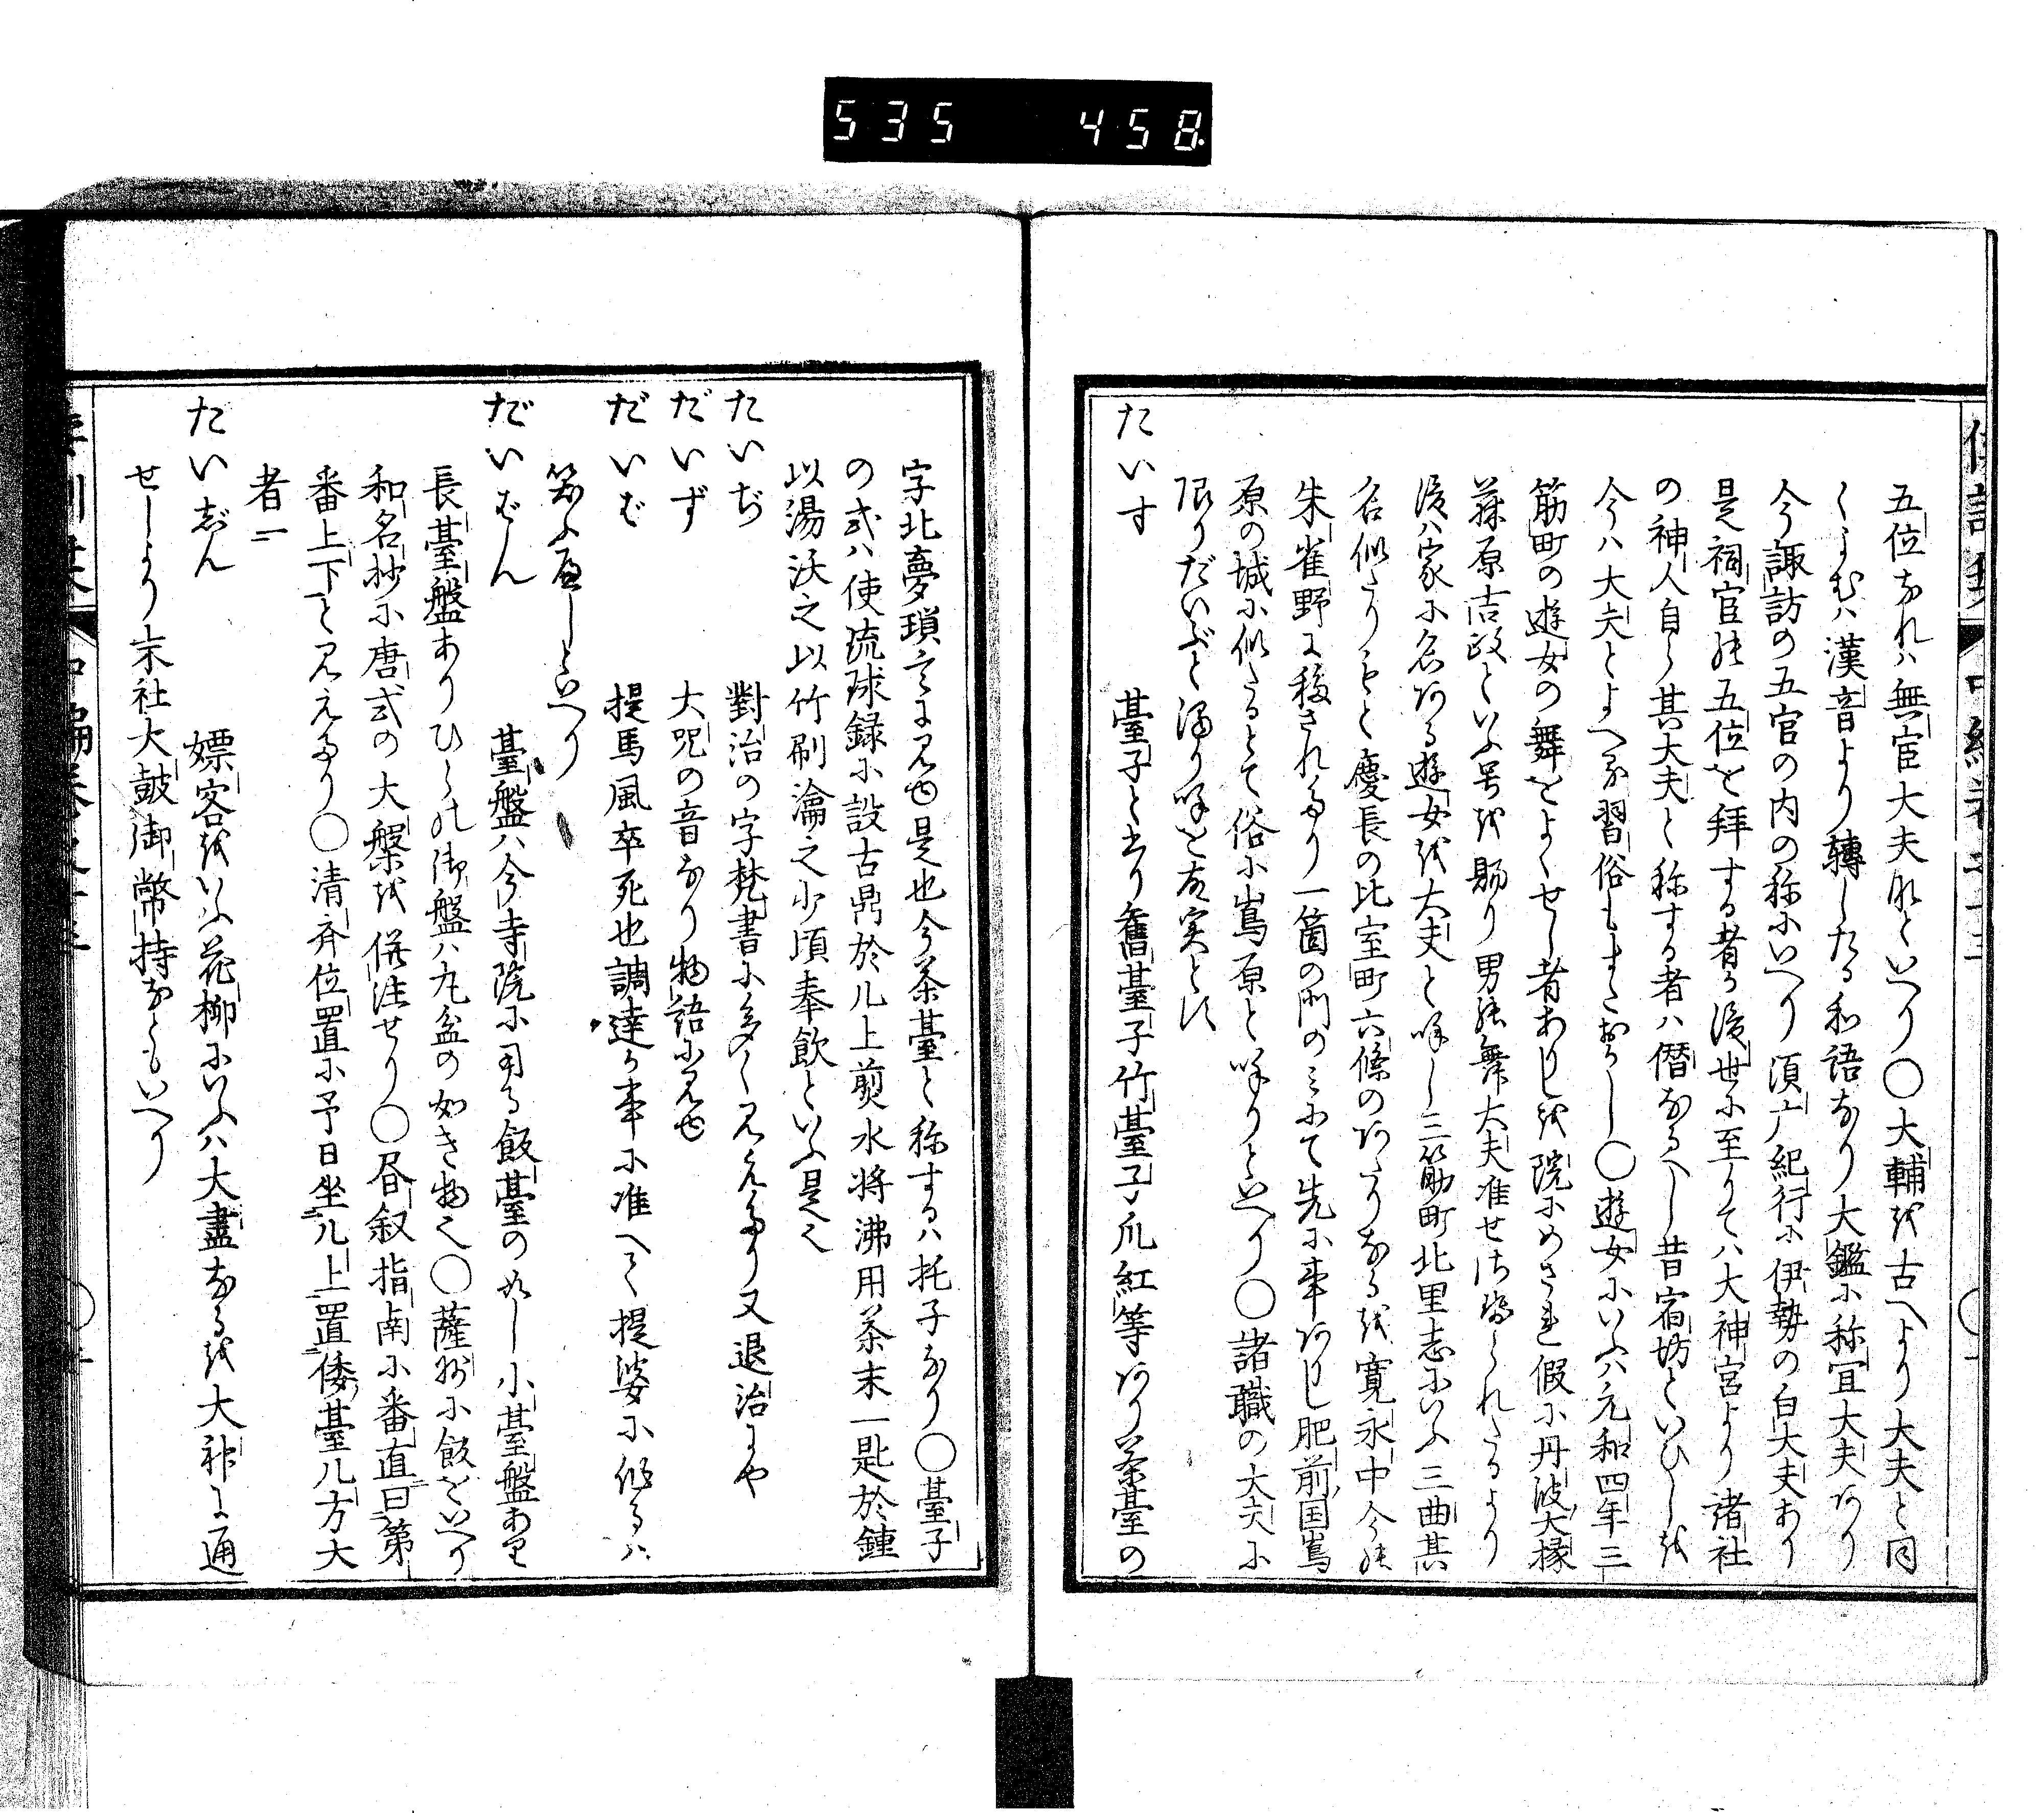 535 458
五位なれハ無官大夫などいへり〇大輔を古へより大夫と同
くよむハ漢音より轉したる和語なり大鑑に称宜大夫あり
今諏訪の五官の内の称にいへり須广紀行に伊勢の白大夫あり
是祠官の五位を拜する者也後世に至りてハ大神宮より諸社
の神人自ら其大夫と称する者ハ僭なるへし昔宿坊といひしを
今ハ大夫とよへる習俗もまたおかし〇遊女にいふハ元和四年三
筋町の遊女の舞をよくせし者ありしを院にめされ假に丹波大掾
藤原吉政といふ号を賜り男の舞大夫准せさせられたるより
後ハ家に名ある遊女を大夫と呼し三筋町北里志にいふ三曲其
名似たりもと慶長の比室町六條のあたりなるを寛永中今の
朱雀野に移されたり一箇の門のミにて先に事ありし肥前国嶌
原の城に似たるとて俗に嶌原と呼りといへり〇諸職の大夫に
限りだいぶと濁り呼を故実とす
たいす 臺子と書り舊臺子竹臺子爪紅等あり茶臺の
字北夢瑣言に見ゆ是也今茶臺と称するハ托子なり〇臺子
の式ハ使流球録に設古鼎於几上煎水将沸用茶末一匙於鍾
以湯沃之以竹刷瀹之少頃奉飲といふ是也
たいぢ 對治の字梵書に多く見えたり又退治にや
だいず 大呪の音なり物語に見ゆ
だいば 提馬風卒死也調達か事に准へて提婆に作るハ
笑ふへしといへり
だいばん 臺盤ハ今寺院に用る飯臺の如し小臺盤あり
長臺盤ありひらの御盤ハ丸盆の如き物也〇薩州に飯をいへり
和名抄に唐式の大槃を併注せり〇昼叙指南に番直曰第
番上下と見えたり〇清斉位置に予曰坐几上置倭臺几方大
者一
たいじん 嫖客をいふ花柳にいふハ大盡なるを大神に通
せしより末社大鼓御幣持なともいへり